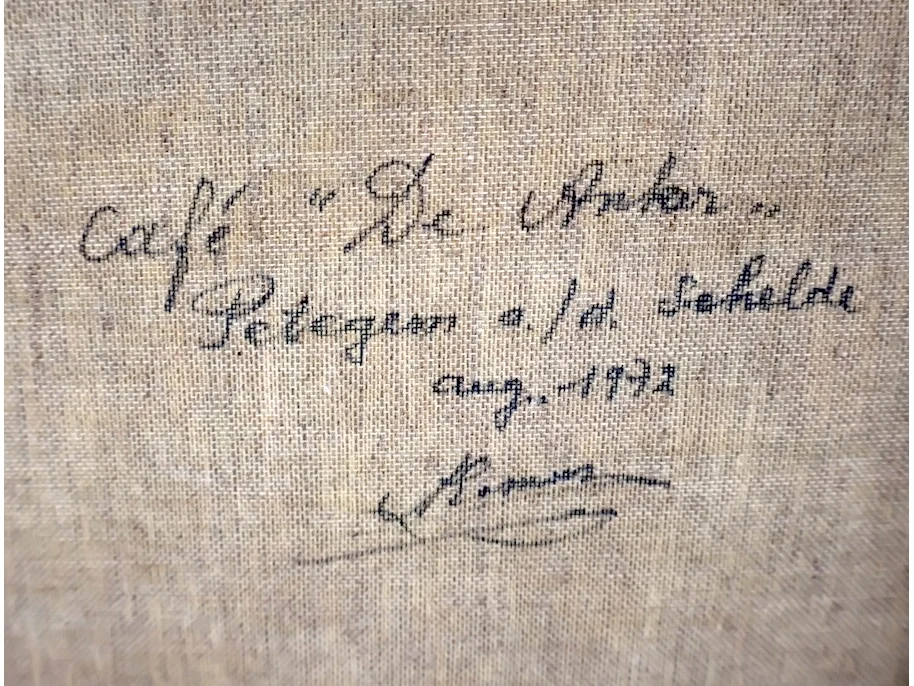 Café "De Anker"
Petegem a./d. Schelde
aug. 1972